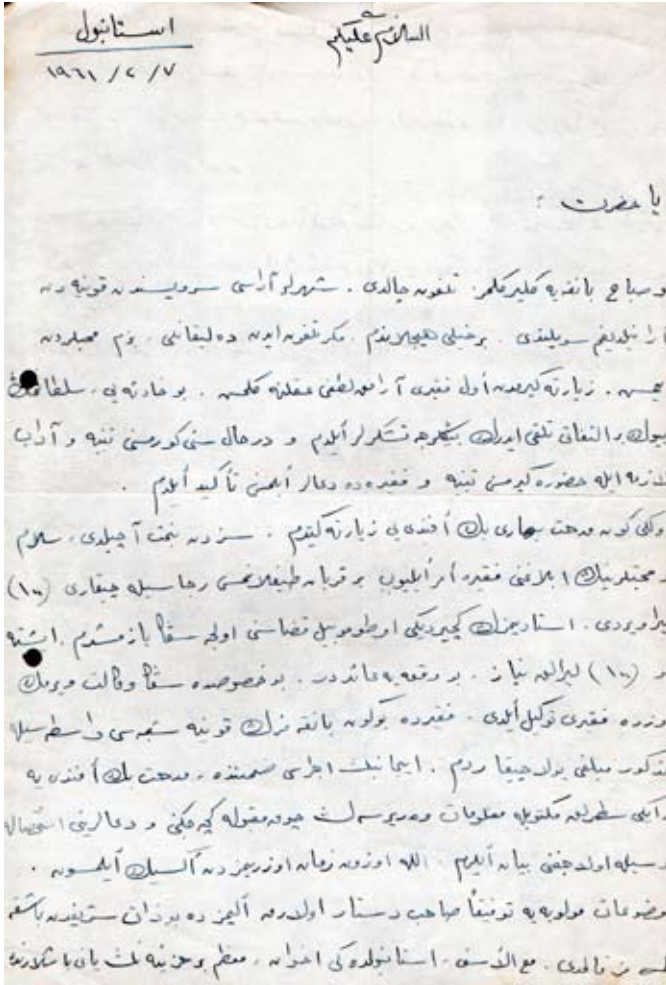 السلام عليكم
استانبول
١٩٦١/٢/٧
يا حضرت :
صباح بانقه يه كليركلمز تلفون چالدى . شهرلر آراسى سرويسندن قونيه دن
آرانيلديغم سويلندى . برخيلى هيجانلاندم . مكر تلفون ايدن
زيارته كيرمدن أول فقيرى آرامق لطفى عقلنه كلمس . بو حادثه يى ، سلطانمك
بيوك بر التفاتى تلقى ايدرك بيكلرجه تشكرلر أيلدم و درحال سنى كورمسنى تنبيه و آداب
ايله حضوره كيرمسنى تنبيه و فقيره ده دعالر أيلمسنى تأكيد أيلدم .
كون مدحت بهارى بك أفندى يى زيارته كيتدم . سزدن بحث آچيلدى ، سلام
ابلاغنى فقيره أمر أيليوب بر قربان رجاسيله چيقاروب (١٠٠)
ليرا ويردى . استاديمزك كچيرديكى اوطوموبيل قضاسنى اولجه سكا يازمشدم . اشته
بو (١٠٠) ليرالق نياز ، بو وقعه يه عائددر . بو خصوصده سكا وكالت ويرمك
اوزره فقيرى توكيل أيلدى . فقيرده بوكون بانقه مزك قونيه شعبه سى واسطه سيله
مذكور مبلغى يوله چيقاردم . ايجابنك اجراسى ضمننده ، مدحت بك أفندى يه
ايكى سطرلق مكتوبله معلومات ويريرسه ك چوق مقبوله كچه جكنى و دعالرينى استحصاله
وسيله اوله جغنى بيان أيلرم . الله اوزون زمان اوزرمزدن أكسيك أيلمسون .
موضوعات مولويه يه توفيقاً صاحب دستار اولهرق أليمزده بو ذات شريفدن باشقه
كيمسه ز قالمدى . مع الأسف ، استانبولده كى اخوان ، معظم بر خزينه نك يانى باشلرنده